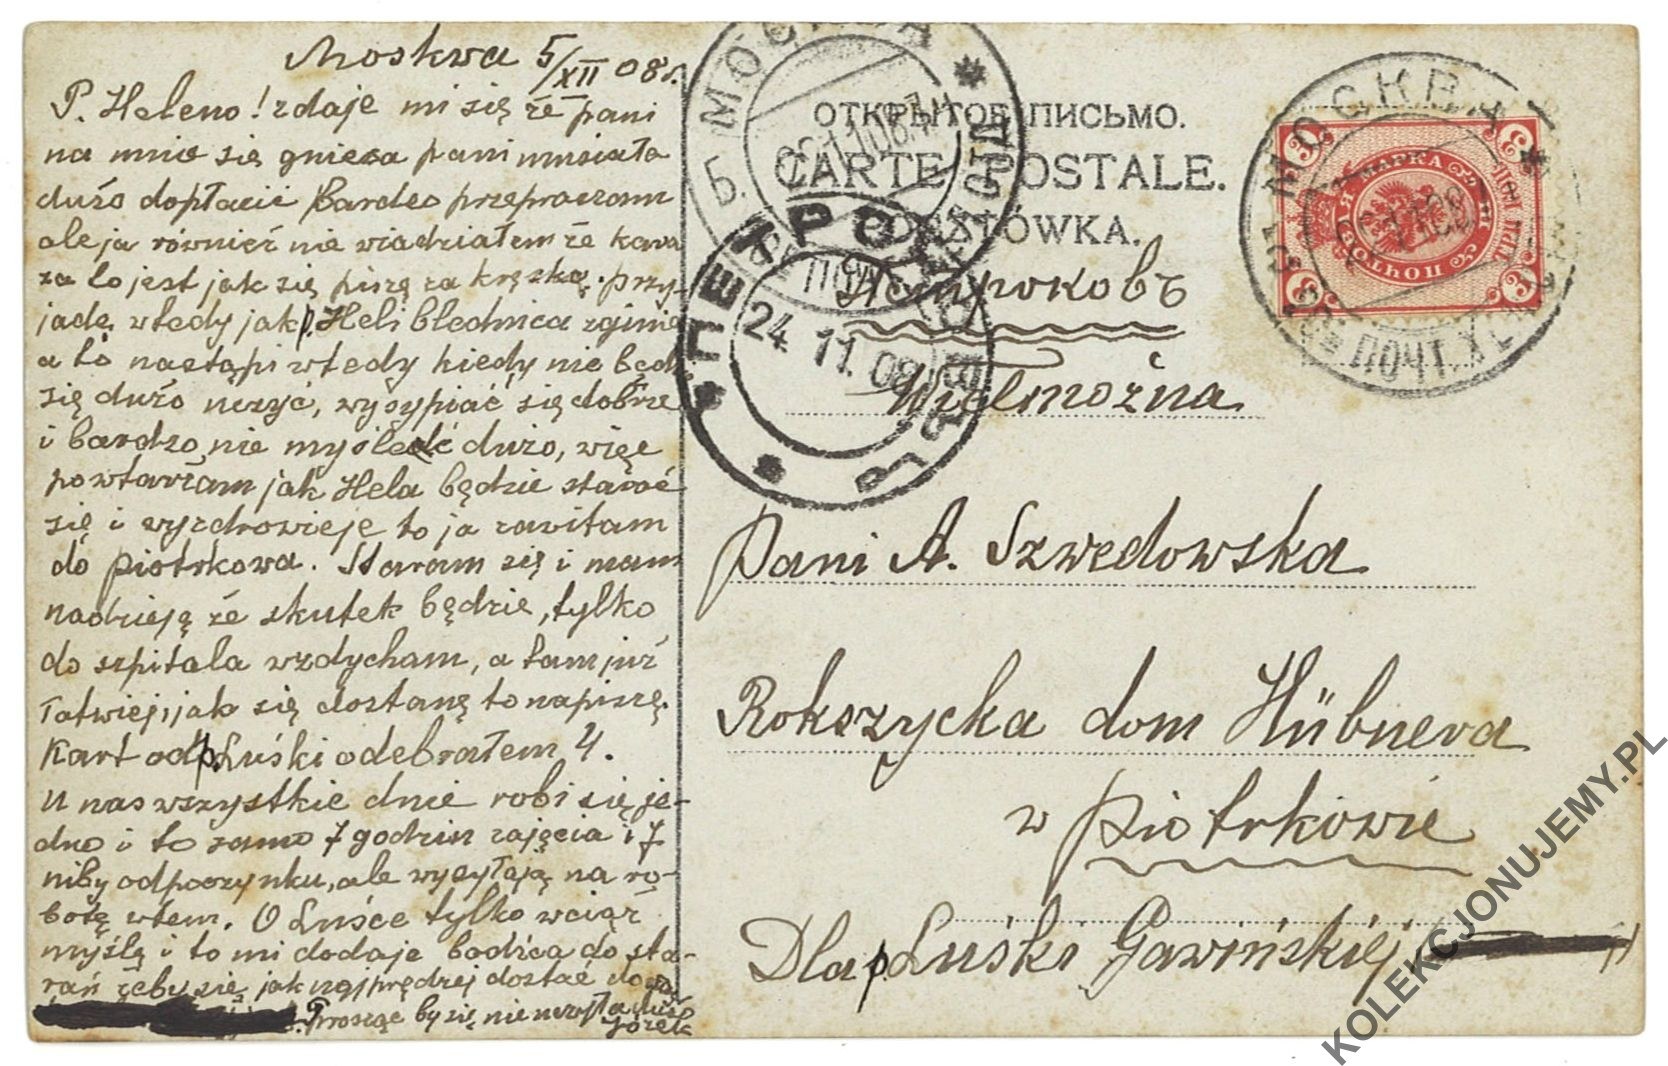 Moskwa 5/XII 08 r.
P. Heleno! zdaje mi się że pani
na mnie się gniewa pani musiała
dużo dopłacić bardzo przepraszam
ale ja również nie wiedziałem że kawa
za to jest jak się piszę za kręskę. przy-
jadę wtedy jak p. Heli blednica zginie
a to nastąpi wtedy kiedy nie będzie
się dużo uczyć, wysypiać się dobrze
i bardzo nie myśleć dużo, więc
powtarzam jak Hela będzie starać
się i wyzdrowieje to ja zawitam
do Piotrkowa. Staram się i mam
nadzieję że skutek będzie, tylko
do szpitala wzdycham, a tam już
łatwiej, jak się dostanę to napiszę.
Kart od p. Luśki odebrałem 4.
U nas wszystkie dnie robi się je-
dno i to samo 7 godzin zajęcia i 7
niby odpoczynku, ale wysyłają na ro-
botę wtem. O Luśce tylko wciąż
myślę i to mi dodaje bodźca do sta-
rań żeby się jak najprędzej dostać do
Proszę by się nie uczyła dużo
Józek
ОТКРЫТОЕ ПИСЬМО.
CARTE POSTALE.
POCZTÓWKA.
Петроковъ
Wielmożna
Pani A. Szwedowska
Rokszycka dom Hübnera
w Piotrkowie
Dla p. Luśki Gawińskiéj
Б. МОСКВА
ПЕТРОКОВЪ
24 11. 08
МОСКВА
ПОЧТ.
МАРКА
ПОЧТОВАЯ
3
3
3
3
KOLEKCJONUJEMY.PL